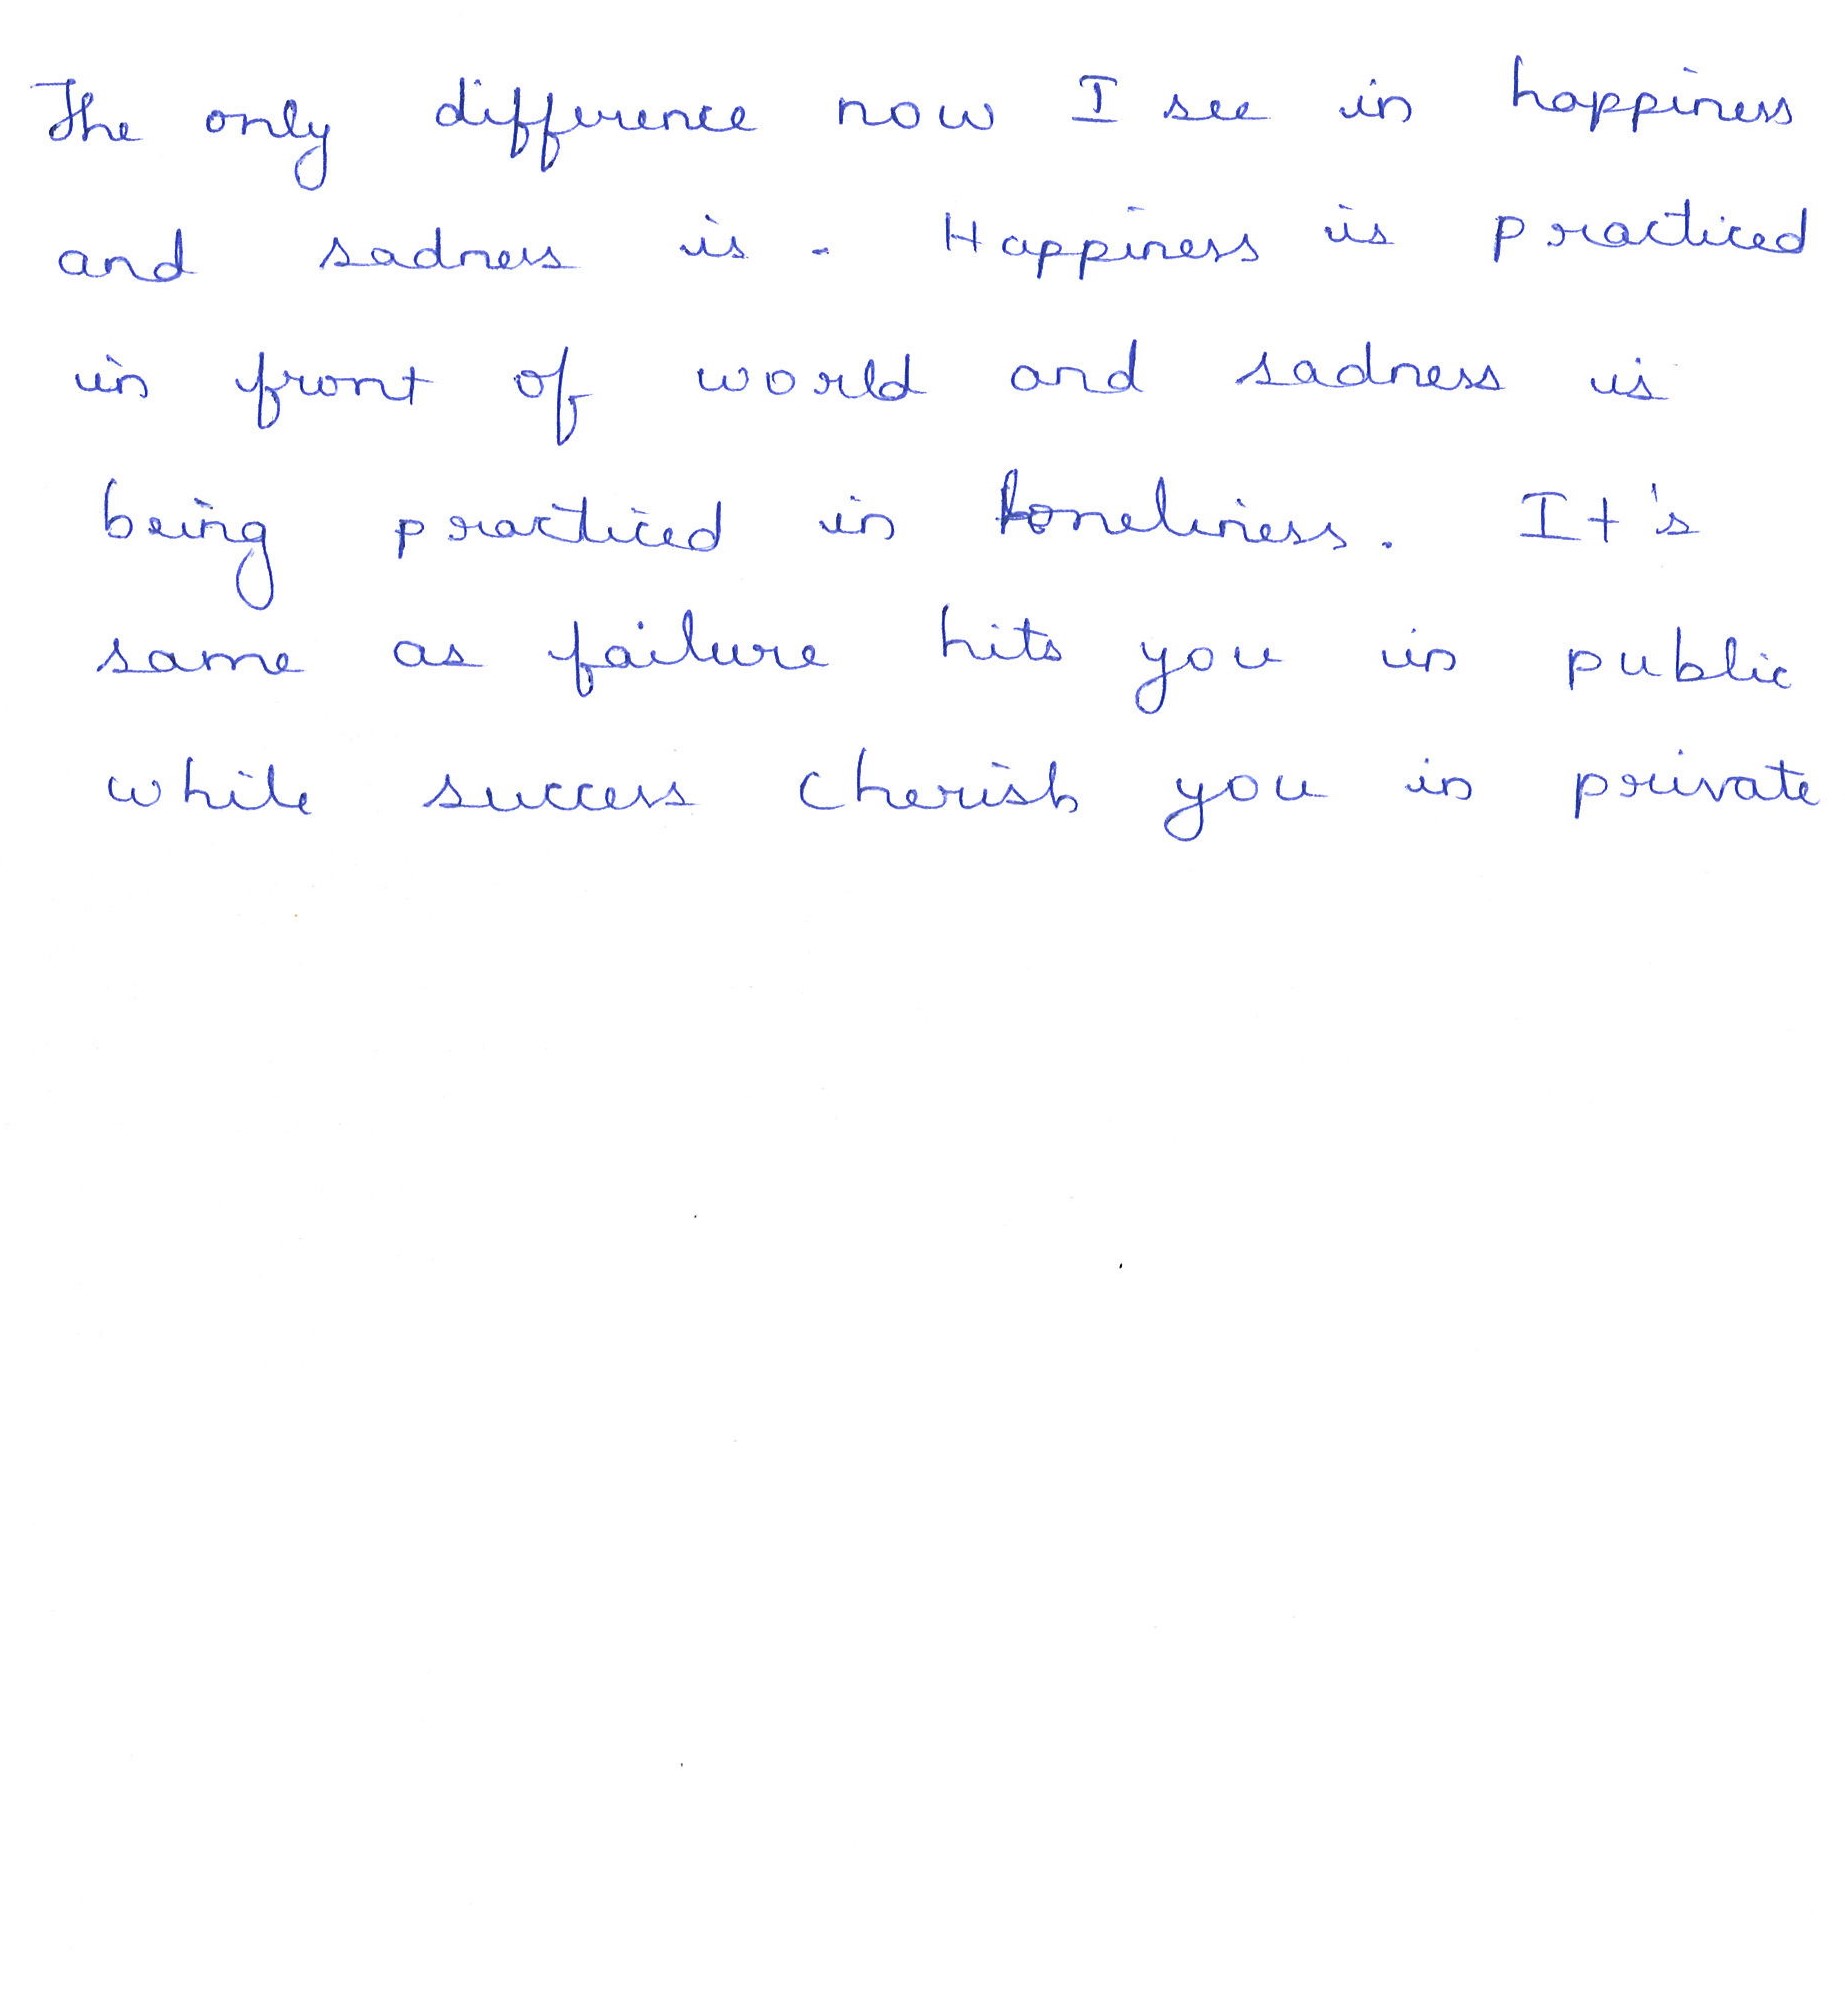 The only difference now I see in happiness
and sadness is - Happiness is practiced
in front of world and sadness is
being practiced in loneliness. It's
same as failure hits you in public
while success cherish you in private